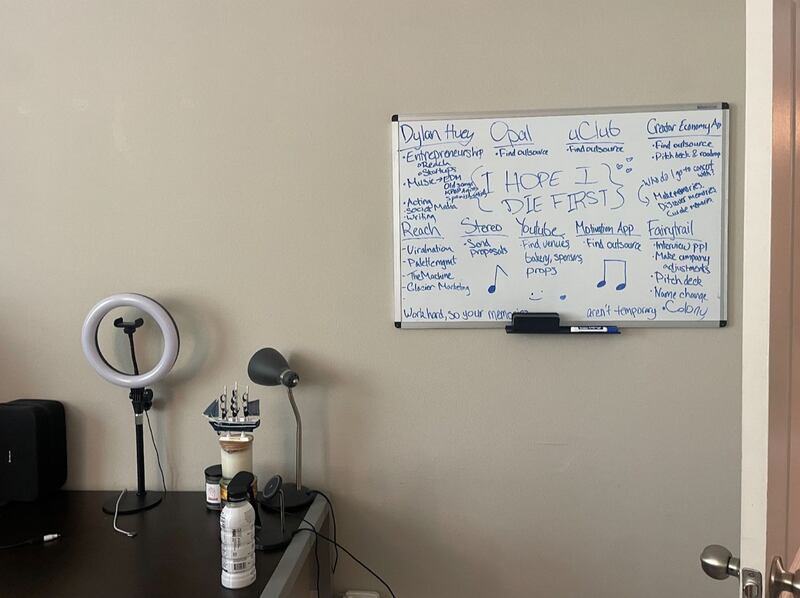 Dylan Huey
• Entrepreneurship
• Reach
• Startups
• Music → EDM
Old songs
• Acting
Social Media
• Writing
Opal
• Find outsource
uClub
• Find outsource
Creator Economy Ap
• Find outsource
• Pitch deck & roadmap
{I HOPE I
DIE FIRST}
Who do I go to concert
with?
Make memories
Discover memories
Reach
- Viralnation
- Palettemgmt
- The Machine
- Glacier Marketing
Stereo
• Send
proposals
Youtube
- Find venues
bakery, sponsors
props
Motivation App
• Find outsource
Fairytrail
• Interview ppl
• Make company
adjustments
• Pitch deck
• Name change
• Colony
Work hard, so your memories aren't temporary